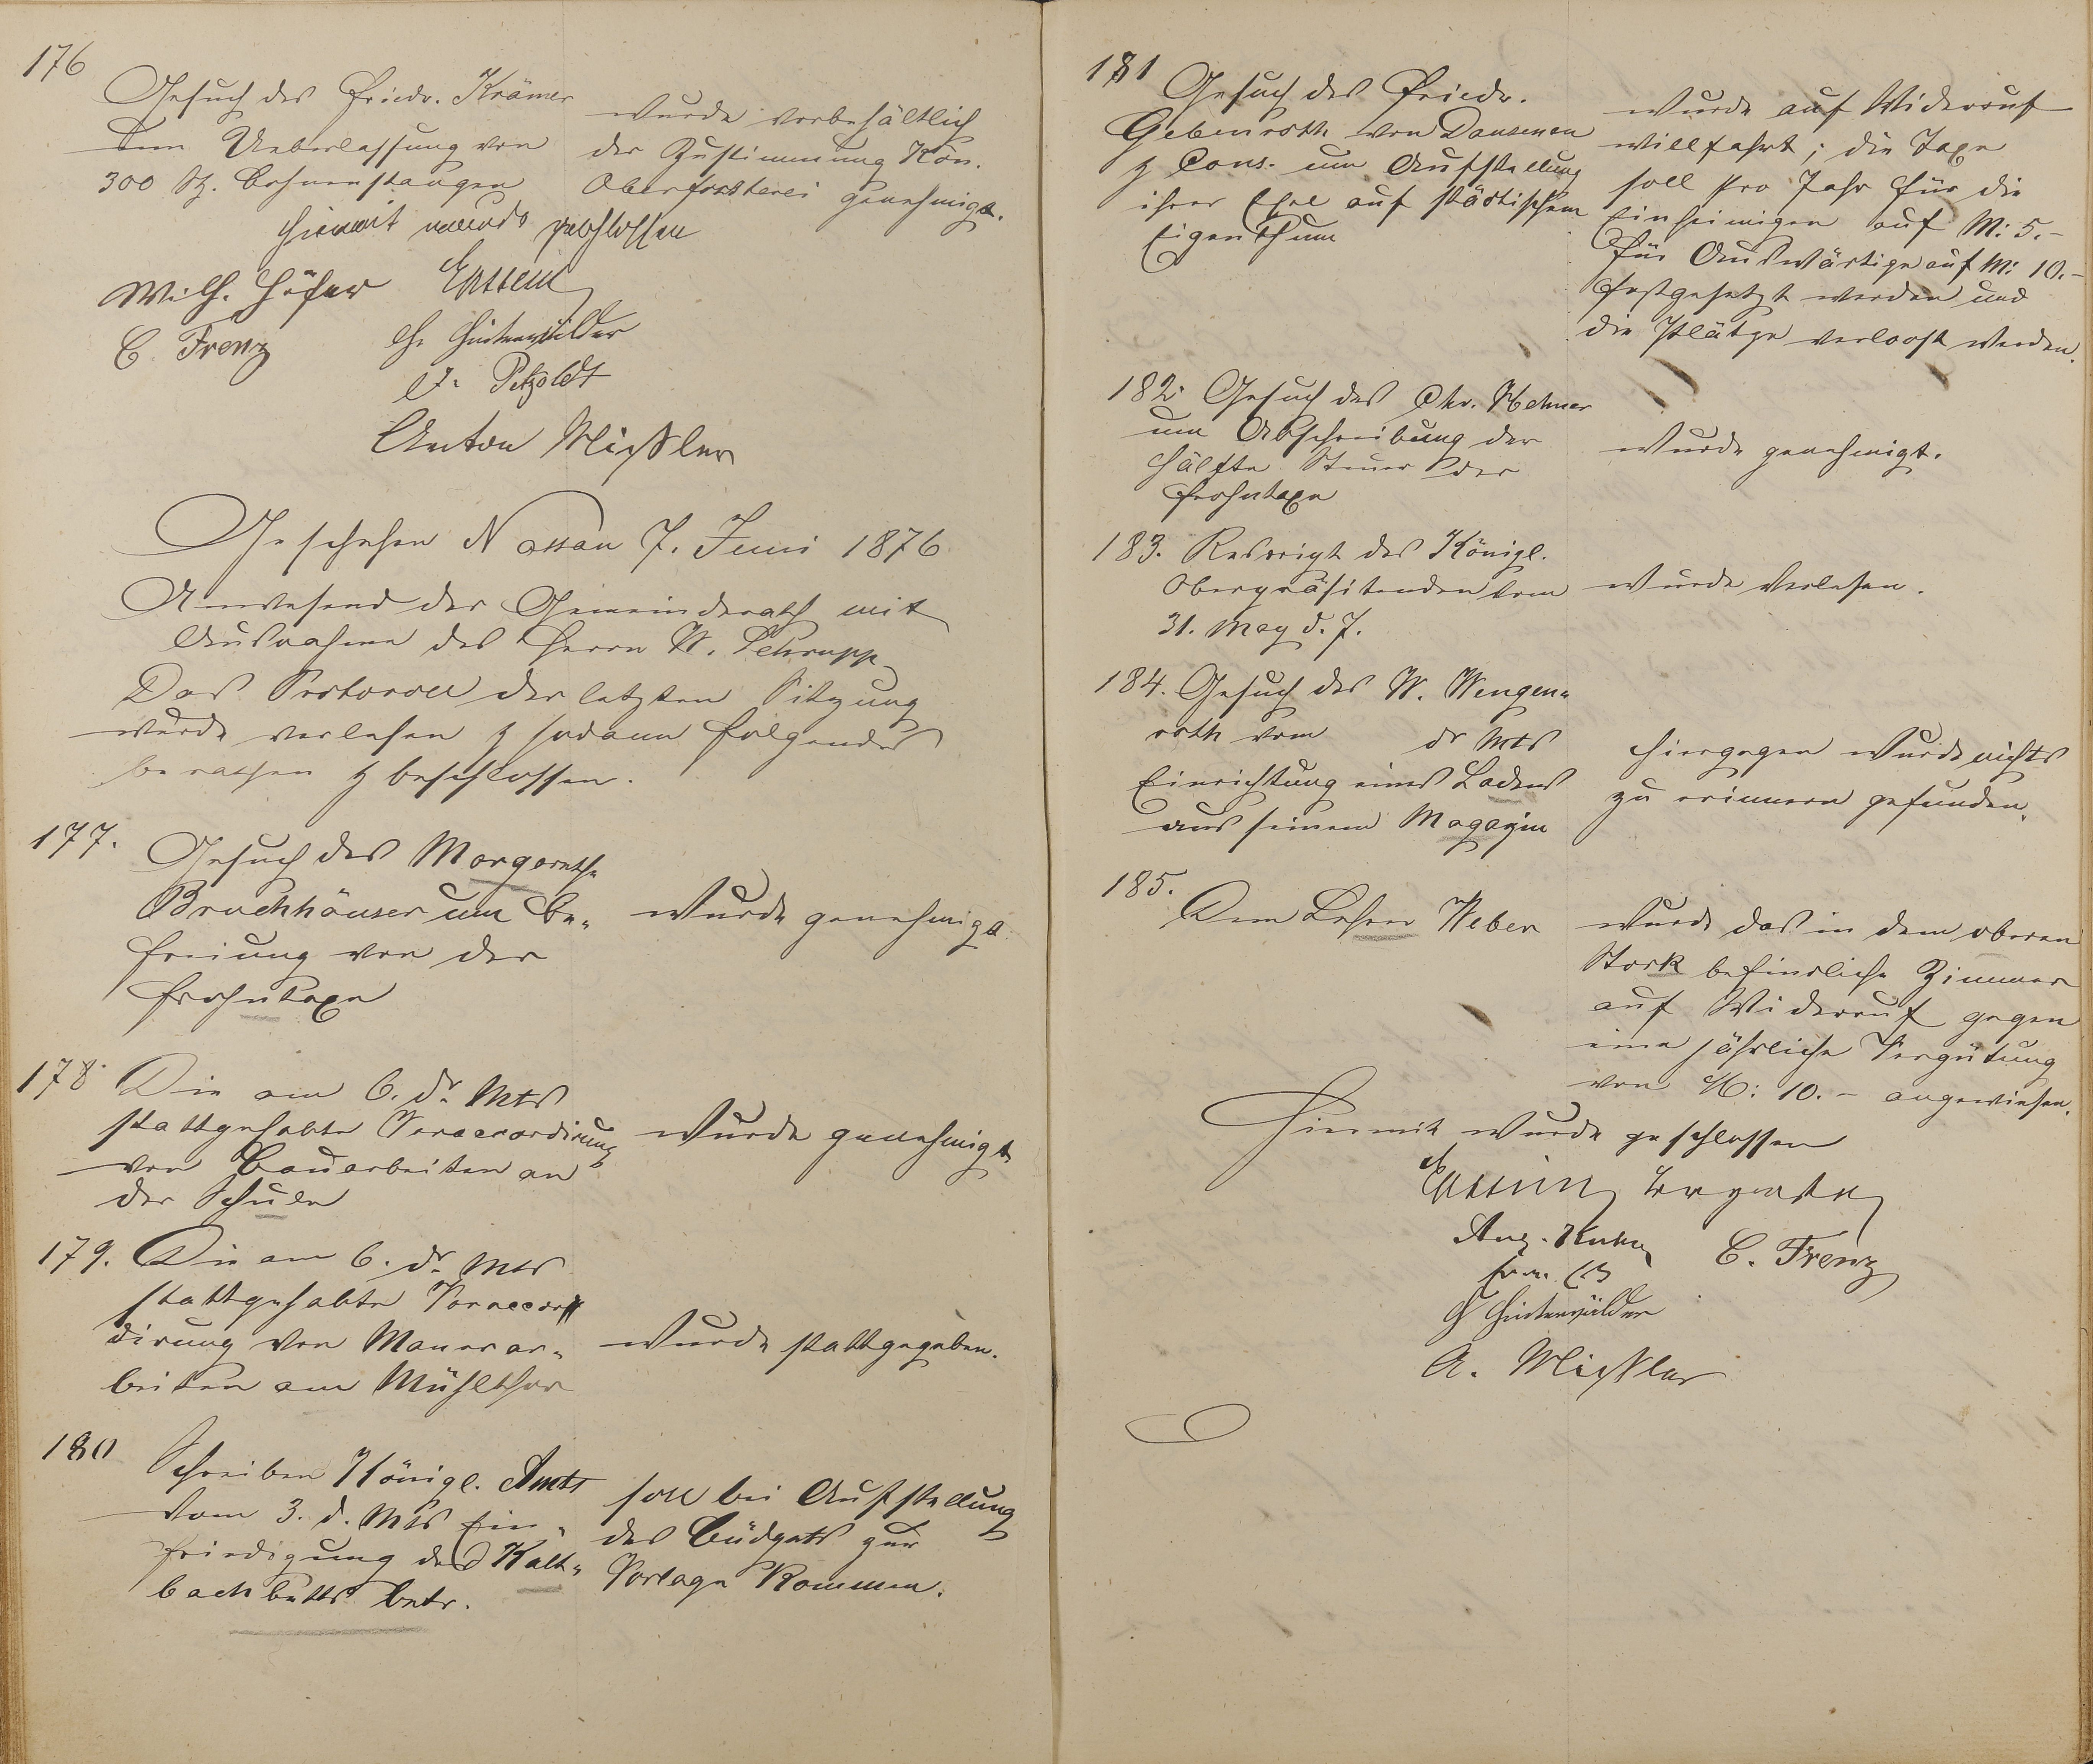 176
Gesuch des Friedr. Krämer
um Ueberlassung von
300 St. Bohnenstangen
wurde vorbehältlich
der Zustimmung Kön.
Oberförsterei genehmigt.
Hiermit wurde geschlossen
Wilh. Höfer
C. Frenz
Ch. Hinterwälder
Petzoldt
Anton Mißler
Geschehen Nassau 7. Juni 1876
Anwesend der Gemeinderath mit
Ausnahme des Herrn W. Schrupp
Das Protocoll der letzten Sitzung
wurde verlesen & sodann folgendes
berathen & beschlossen.
177.
Gesuch des Margarethe
Bruchhäuser um Be-
freiung von der
Frohntaxe
wurde genehmigt
178. Die am 6. ds Mts
stattgehabte Veraccordirung
von Bauarbeiten an
der Schule
wurde genehmigt
179. Die am 6. ds Mts
stattgehabte Veraccor
dirung von Maurerar-
beiten am Mühlthor
wurde stattgegeben.
180
Schreiben Königl. Amts
vom 3. d. Mts Ein-
friedigung des Kalt-
bachbetts betr.
soll bei Aufstellung
des Büdgets zur
Vorlage kommen.
181
Gesuch des Friedr.
Gebenroth von Dausenau
& Cons. um Aufstellung
ihrer auf städtischem
Eigenthum
wurde auf Widerruf
willfahrt; die Taxe
soll pro Jahr für die
Einheimigen auf M: 5.-
für Auswärtige auf M: 10.-
festgesetzt werden und
die Plätze verloost werden.
182. Gesuch des Chr. Mehner
um Abschreibung der
Hälfte Steuer der
Frohntaxe
wurde genehmigt.
183. Rescript des Königl.
Oberpräsidenden vom
31. May d. J.
wurde verlesen.
184. Gesuch des W. Wengen-
roth vom ds Mts
Einrichtung eines Ladens
aus seinem Magazin
Hiergegen wurde nichts
zu erinnern gefunden.
185.
Dem Lehrer Weber
wurde das in dem oberen
Stock befindliche Zimmer
auf Widerruf gegen
eine jährliche Vergütung
von M: 10.- angewiesen.
Hiermit wurde geschlossen
Aug.
C. Frenz
Hinterwälder
A. Mißler